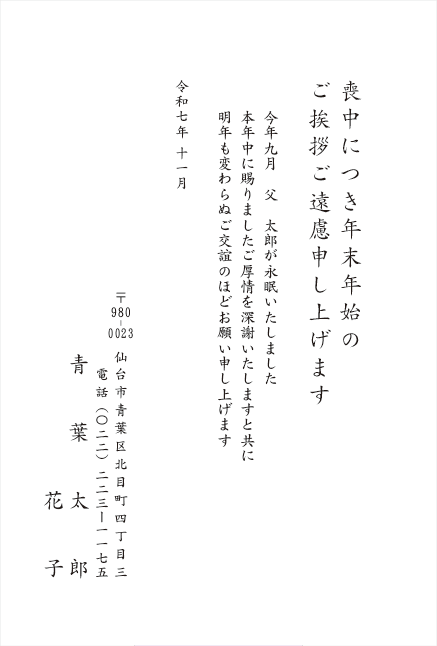 喪中につき年末年始の
ご挨拶ご遠慮申し上げます
今年九月　父　太郎が永眠いたしました
本年中に賜りましたご厚情を深謝いたしますと共に
明年も変わらぬご交誼のほどお願い申し上げます
令和七年 十一月
〒980-0023
仙台市青葉区北目町四丁目三
電話（〇二二）二二三ー一一七五
青葉 太郎
花子